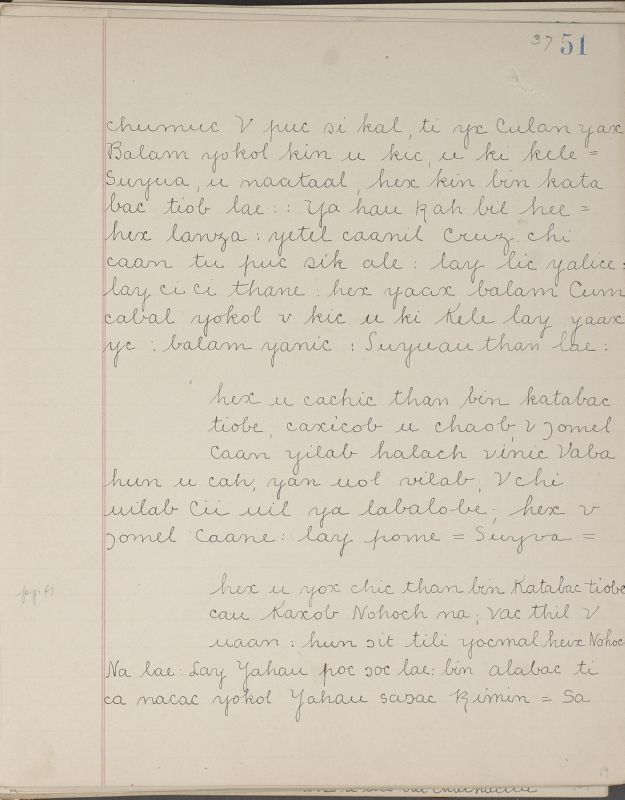 37 51
chumuc V puc si kal, ti yx Culan yax
Balam yokol kin u kic, u ki kele =
Suyua, u naataal, hex kin bin kata
bac tiob lae :: Ya hau kah bil hee =
hex lanza : yetel caanil Cruz. chi
caan tu puc sik ale : lay lic yalice :
lay ci ci thane. hex yaax balam Cum
cabal yokol v kic u ki Kele lay yaax
yc : balam yanic : Suyuau than lae :
hex u cachic than bin katabac
tiobe, caxicob u chaob, v ɔomel
Caan yilab halach vinic Vaba
hun u cah, yan uol vilab, V chi
uilab Cii uil ya labalobe; hex v
ɔomel Caane : lay pome = Suyva =
pag. 41
hex u yox chic than bin Katabac tiobe
cau Kaxob Nohoch na; vac thil V
uaan : hun ɔit tili yocmal. heix Nohoc
Na lae : Lay Yahau poc ɔoc lae : bin alabac ti
ca nacac yokol Yahau saɔac Kimin = Sa